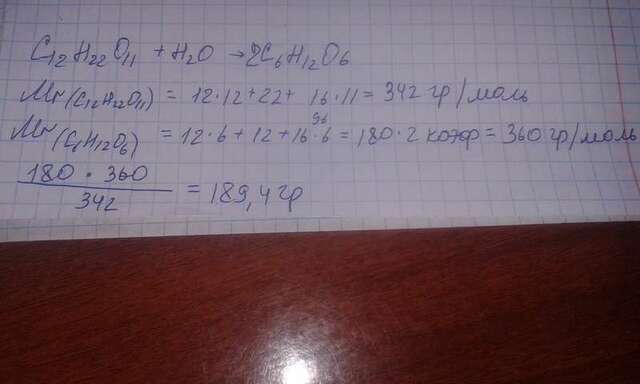 C12H22O11 + H2O → 2C6H12O6
Mr(C12H22O11) = 12·12+22+ 16·11 = 342 гр/моль
96
Mr(C6H12O6) = 12·6+12+16·6 = 180·2 коэф = 360 гр/моль
180 · 360
342
= 189,4 гр